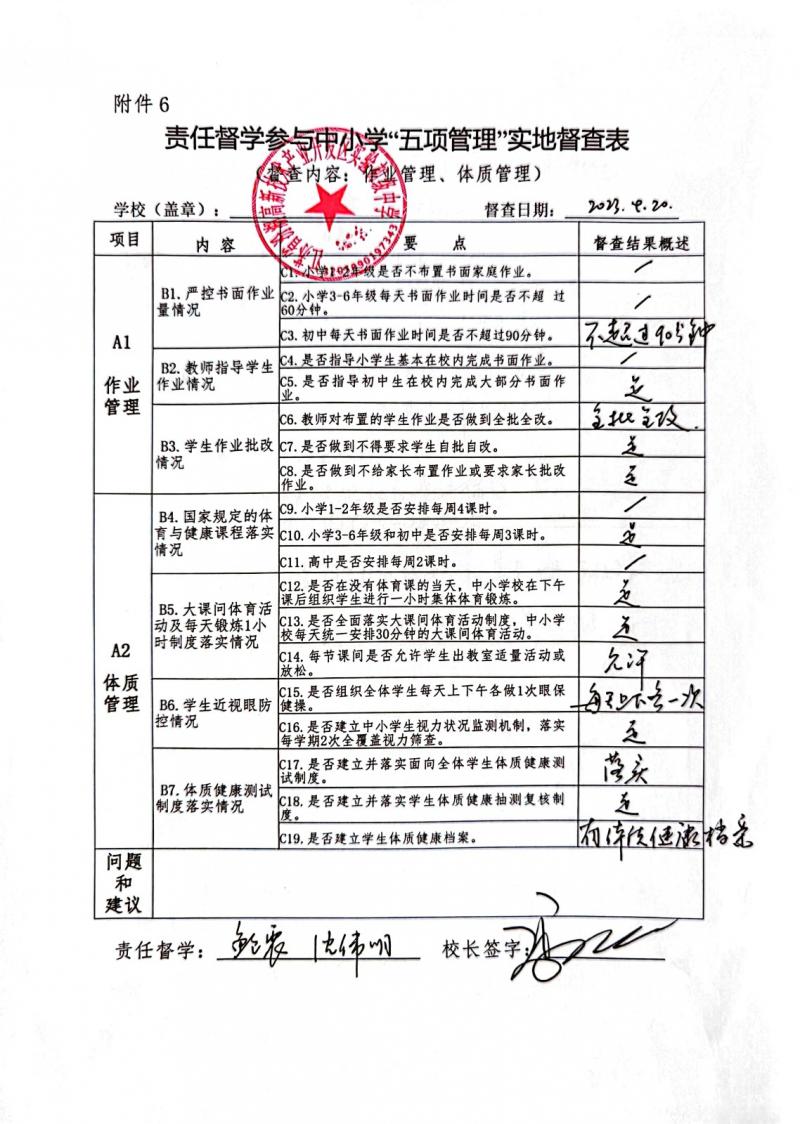 附件 6
责任督学参与中小学“五项管理”实地督查表
（督查内容：作业管理、体质管理）
学校（盖章）：
督查日期： 2023.4.20.
项目 内 容 要 点 督查结果概述
A1
作业
管理
B1. 严控书面作业
量情况
C1. 小学1-2年级是否不布置书面家庭作业。 /
C2. 小学3-6年级每天书面作业时间是否不超 过
60分钟。 /
C3. 初中每天书面作业时间是否不超过90分钟。 不超过90分钟
B2. 教师指导学生
作业情况
C4. 是否指导小学生基本在校内完成书面作业。 /
C5. 是否指导初中生在校内完成大部分书面作
业。 是
B3. 学生作业批改
情况
C6. 教师对布置的学生作业是否做到全批全改。 全批全改.
C7. 是否做到不得要求学生自批自改。 是
C8. 是否做到不给家长布置作业或要求家长批改
作业。 是
A2
体质
管理
B4. 国家规定的体
育与健康课程落实
情况
C9. 小学1-2年级是否安排每周4课时。 /
C10. 小学3-6年级和初中是否安排每周3课时。 是
C11. 高中是否安排每周2课时。 /
B5. 大课间体育活
动及每天锻炼1小
时制度落实情况
C12. 是否在没有体育课的当天，中小学校在下午
课后组织学生进行一小时集体体育锻炼。 是
C13. 是否全面落实大课间体育活动制度，中小学
校每天统一安排30分钟的大课间体育活动。 是
C14. 每节课间是否允许学生出教室适量活动或
放松。 允许
B6. 学生近视眼防
控情况
C15. 是否组织全体学生每天上下午各做1次眼保
健操。 每天上下各一次
C16. 是否建立中小学生视力状况监测机制，落实
每学期2次全覆盖视力筛查。 是
B7. 体质健康测试
制度落实情况
C17. 是否建立并落实面向全体学生体质健康测
试制度。 落实
C18. 是否建立并落实学生体质健康抽测复核制
度。 是
C19. 是否建立学生体质健康档案。 有体质健康档案
问题
和
建议
责任督学： 沈伟明
校长签字：